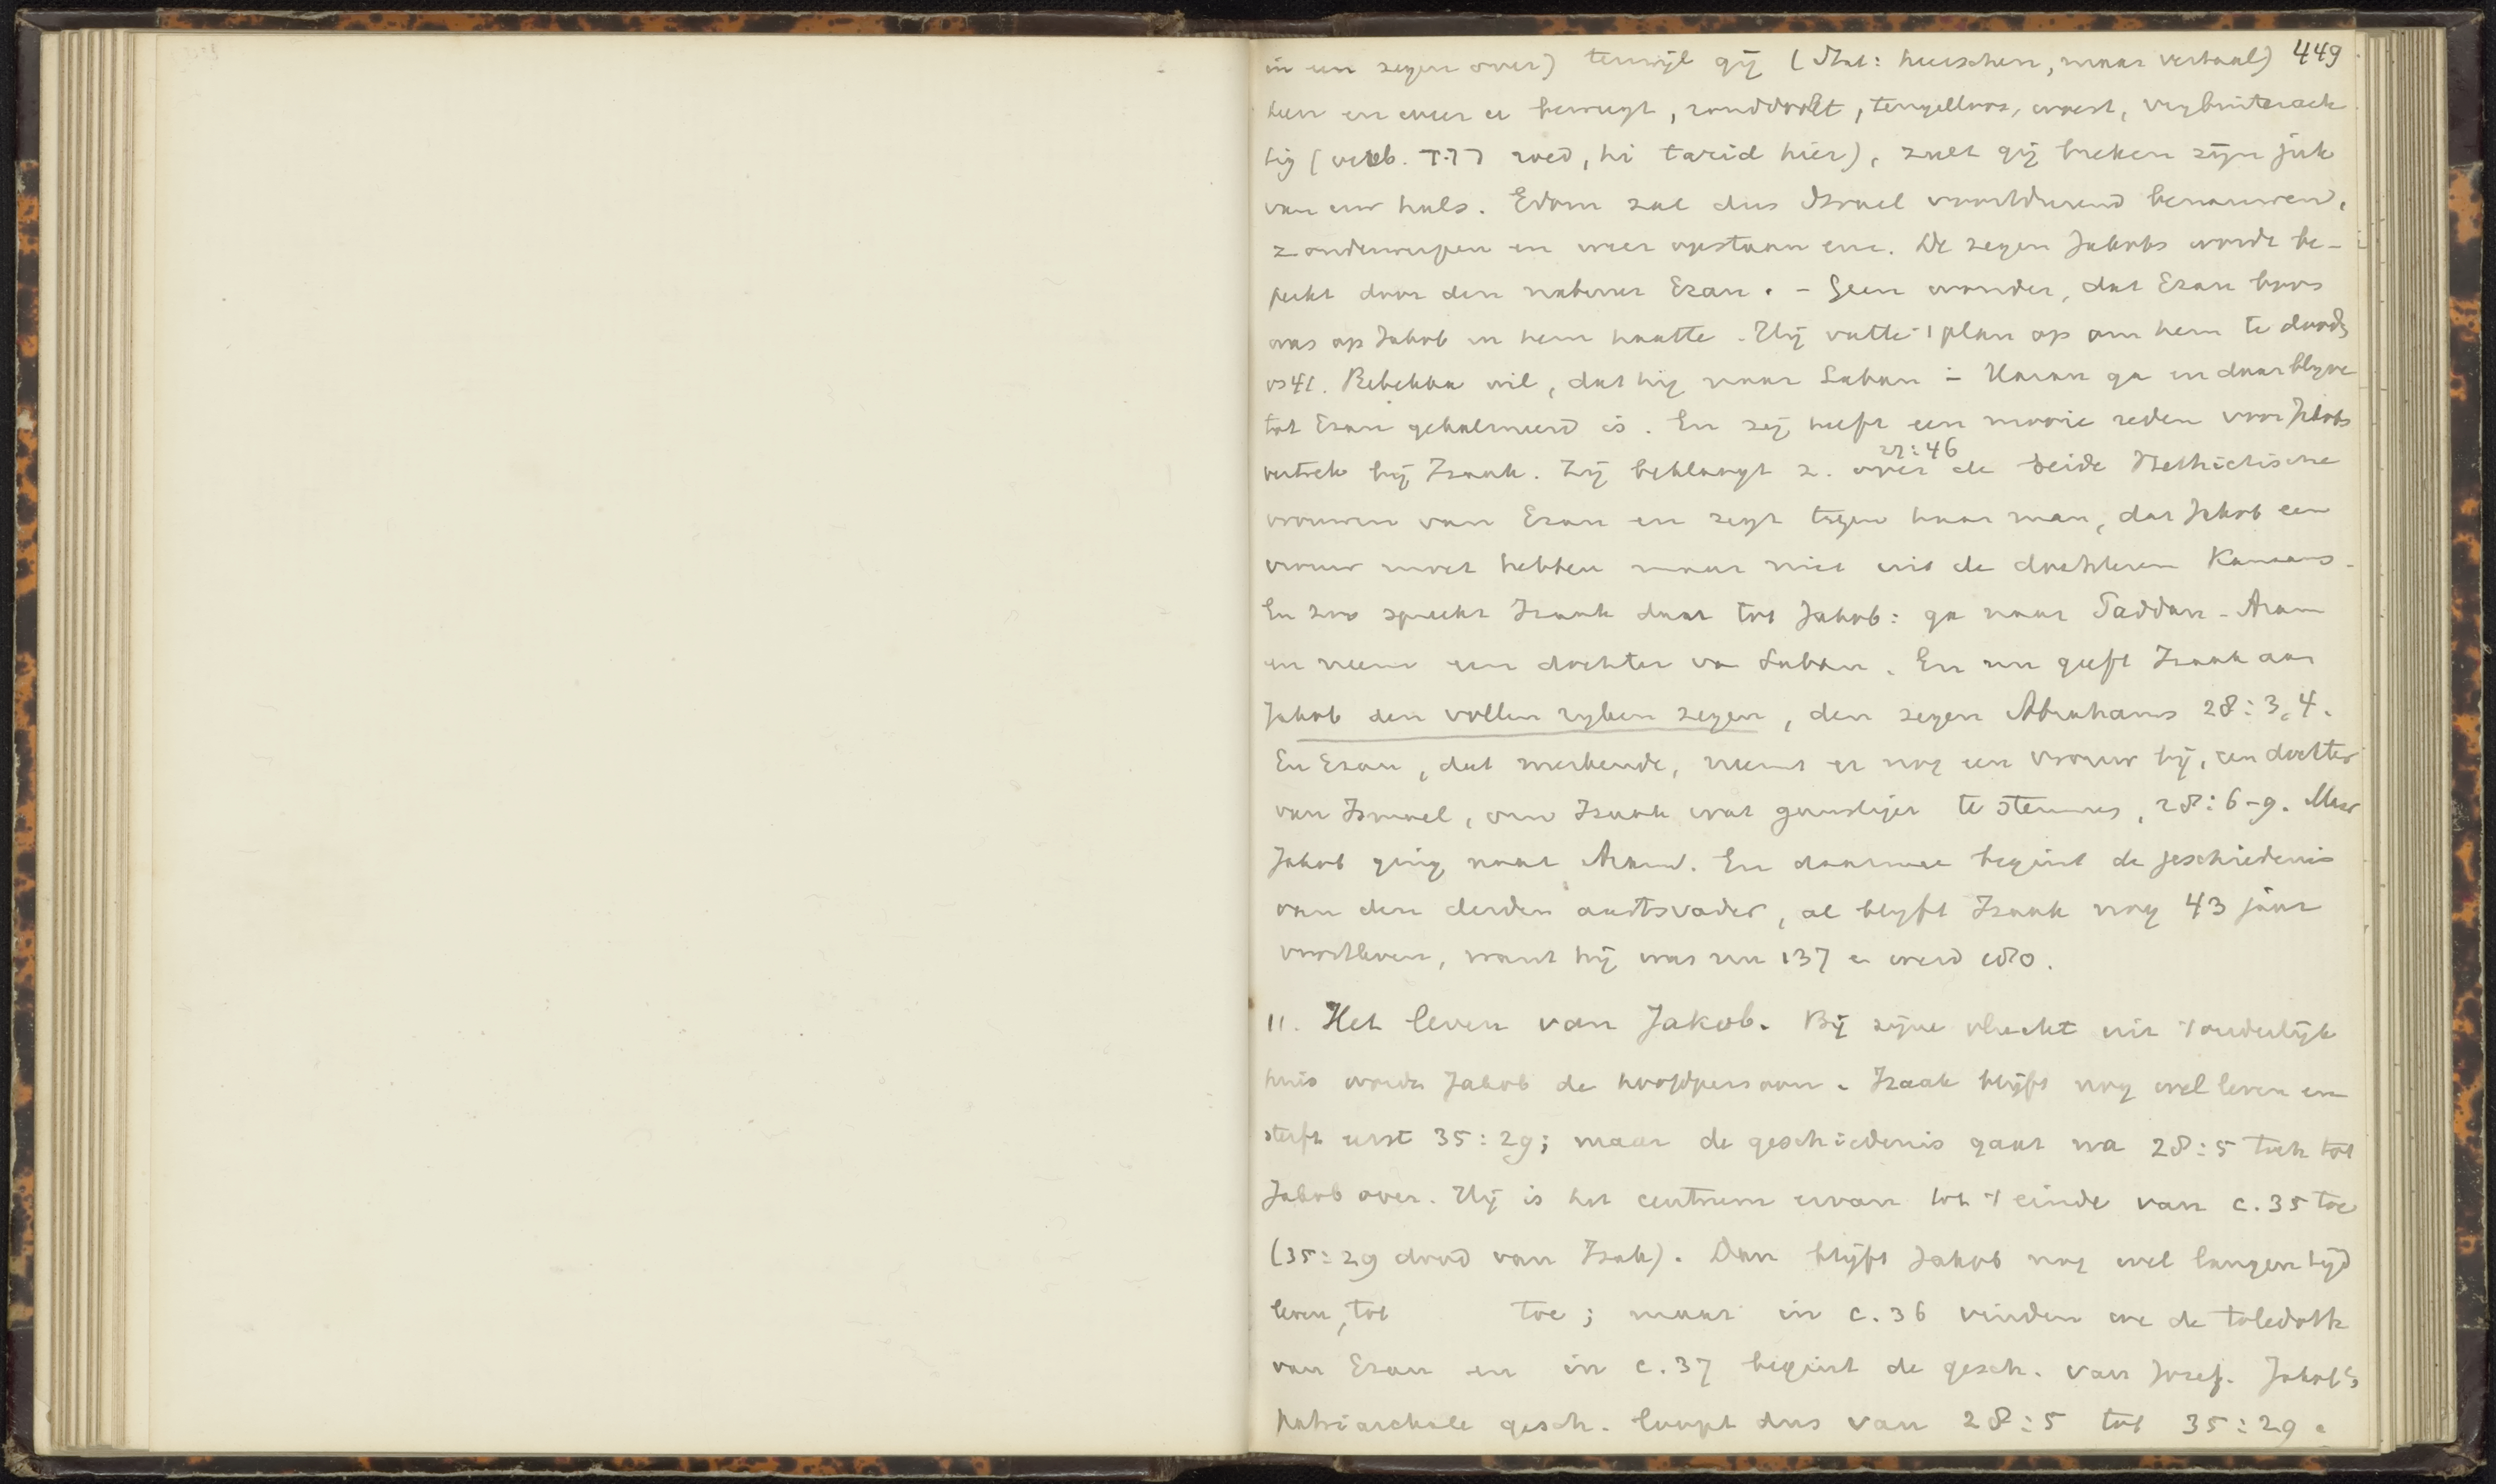 449
in een zegen over) terwijl gij (Stat: heerschen, maar vertaal)
heen en weer u beweegt, ronddoolt, teugelloos, woest, vrybuiterach
tig (verb. רוד roed, hi tarid hier), zult gij breken zijn juk
van uw hals. Edom zal dus Israel voortdurend benauwen,
z onderwerpen en weer opstaan enz. De zegen Jakobs wordt be-
perkt door den nabuur Ezau. - Geen wonder, dat Ezau boos
was op Jakob en hem haatte. Hij vatte 't plan op om hem te dooden
vs 41. Rebekka wil, dat hij naar Laban in Haran ga en daar blyve
tot Ezau gekalmeerd is. En zij heeft een mooie reden voor Jakobs
vertrek bij Izaak. Zij beklaagt z. over de beide Hethietische
27:46
vrouwen van Ezau en zegt tegen haar man, dat Jakob een
vrouw moet hebben maar niet uit de dochteren Kanaans.
En zoo spreekt Izaak daar tot Jakob: ga naar Paddan-Aram
en neem een dochter van Laban. En nu geeft Izaak aan
Jakob den vollen ryken zegen, den zegen Abrahams 28:3,4.
En Ezau, dat merkende, neemt er nog een vrouw bij, een dochter
van Ismael, om Izaak wat gunstiger te stemmen, 28:6-9. Maar
Jakob ging naar Aram. En daarmee begint de geschiedenis
van den derden aartsvader, al blyft Izaak nog 43 jaar
voortleven, want hij was nu 137 en werd 180.
11. Het leven van Jakob. Bij zijne vlucht uit 't ouderlijk
huis wordt Jakob de hoofdpersoon. Izaak blijft nog wel leven en
sterft eerst 35:29; maar de geschiedenis gaat na 28:5 toch tot
Jakob over. Hij is het centrum ervan tot 't einde van c.35 toe
(35:29 dood van Izak). Dan blijft Jakob nog wel langen tijd
leven, tot toe; maar in c.36 vinden we de toledoth
van Ezau en in c.37 begint de gesch. van Jozef. Jakob's
patriarchale gesch. loopt dus van 28:5 tot 35:29.